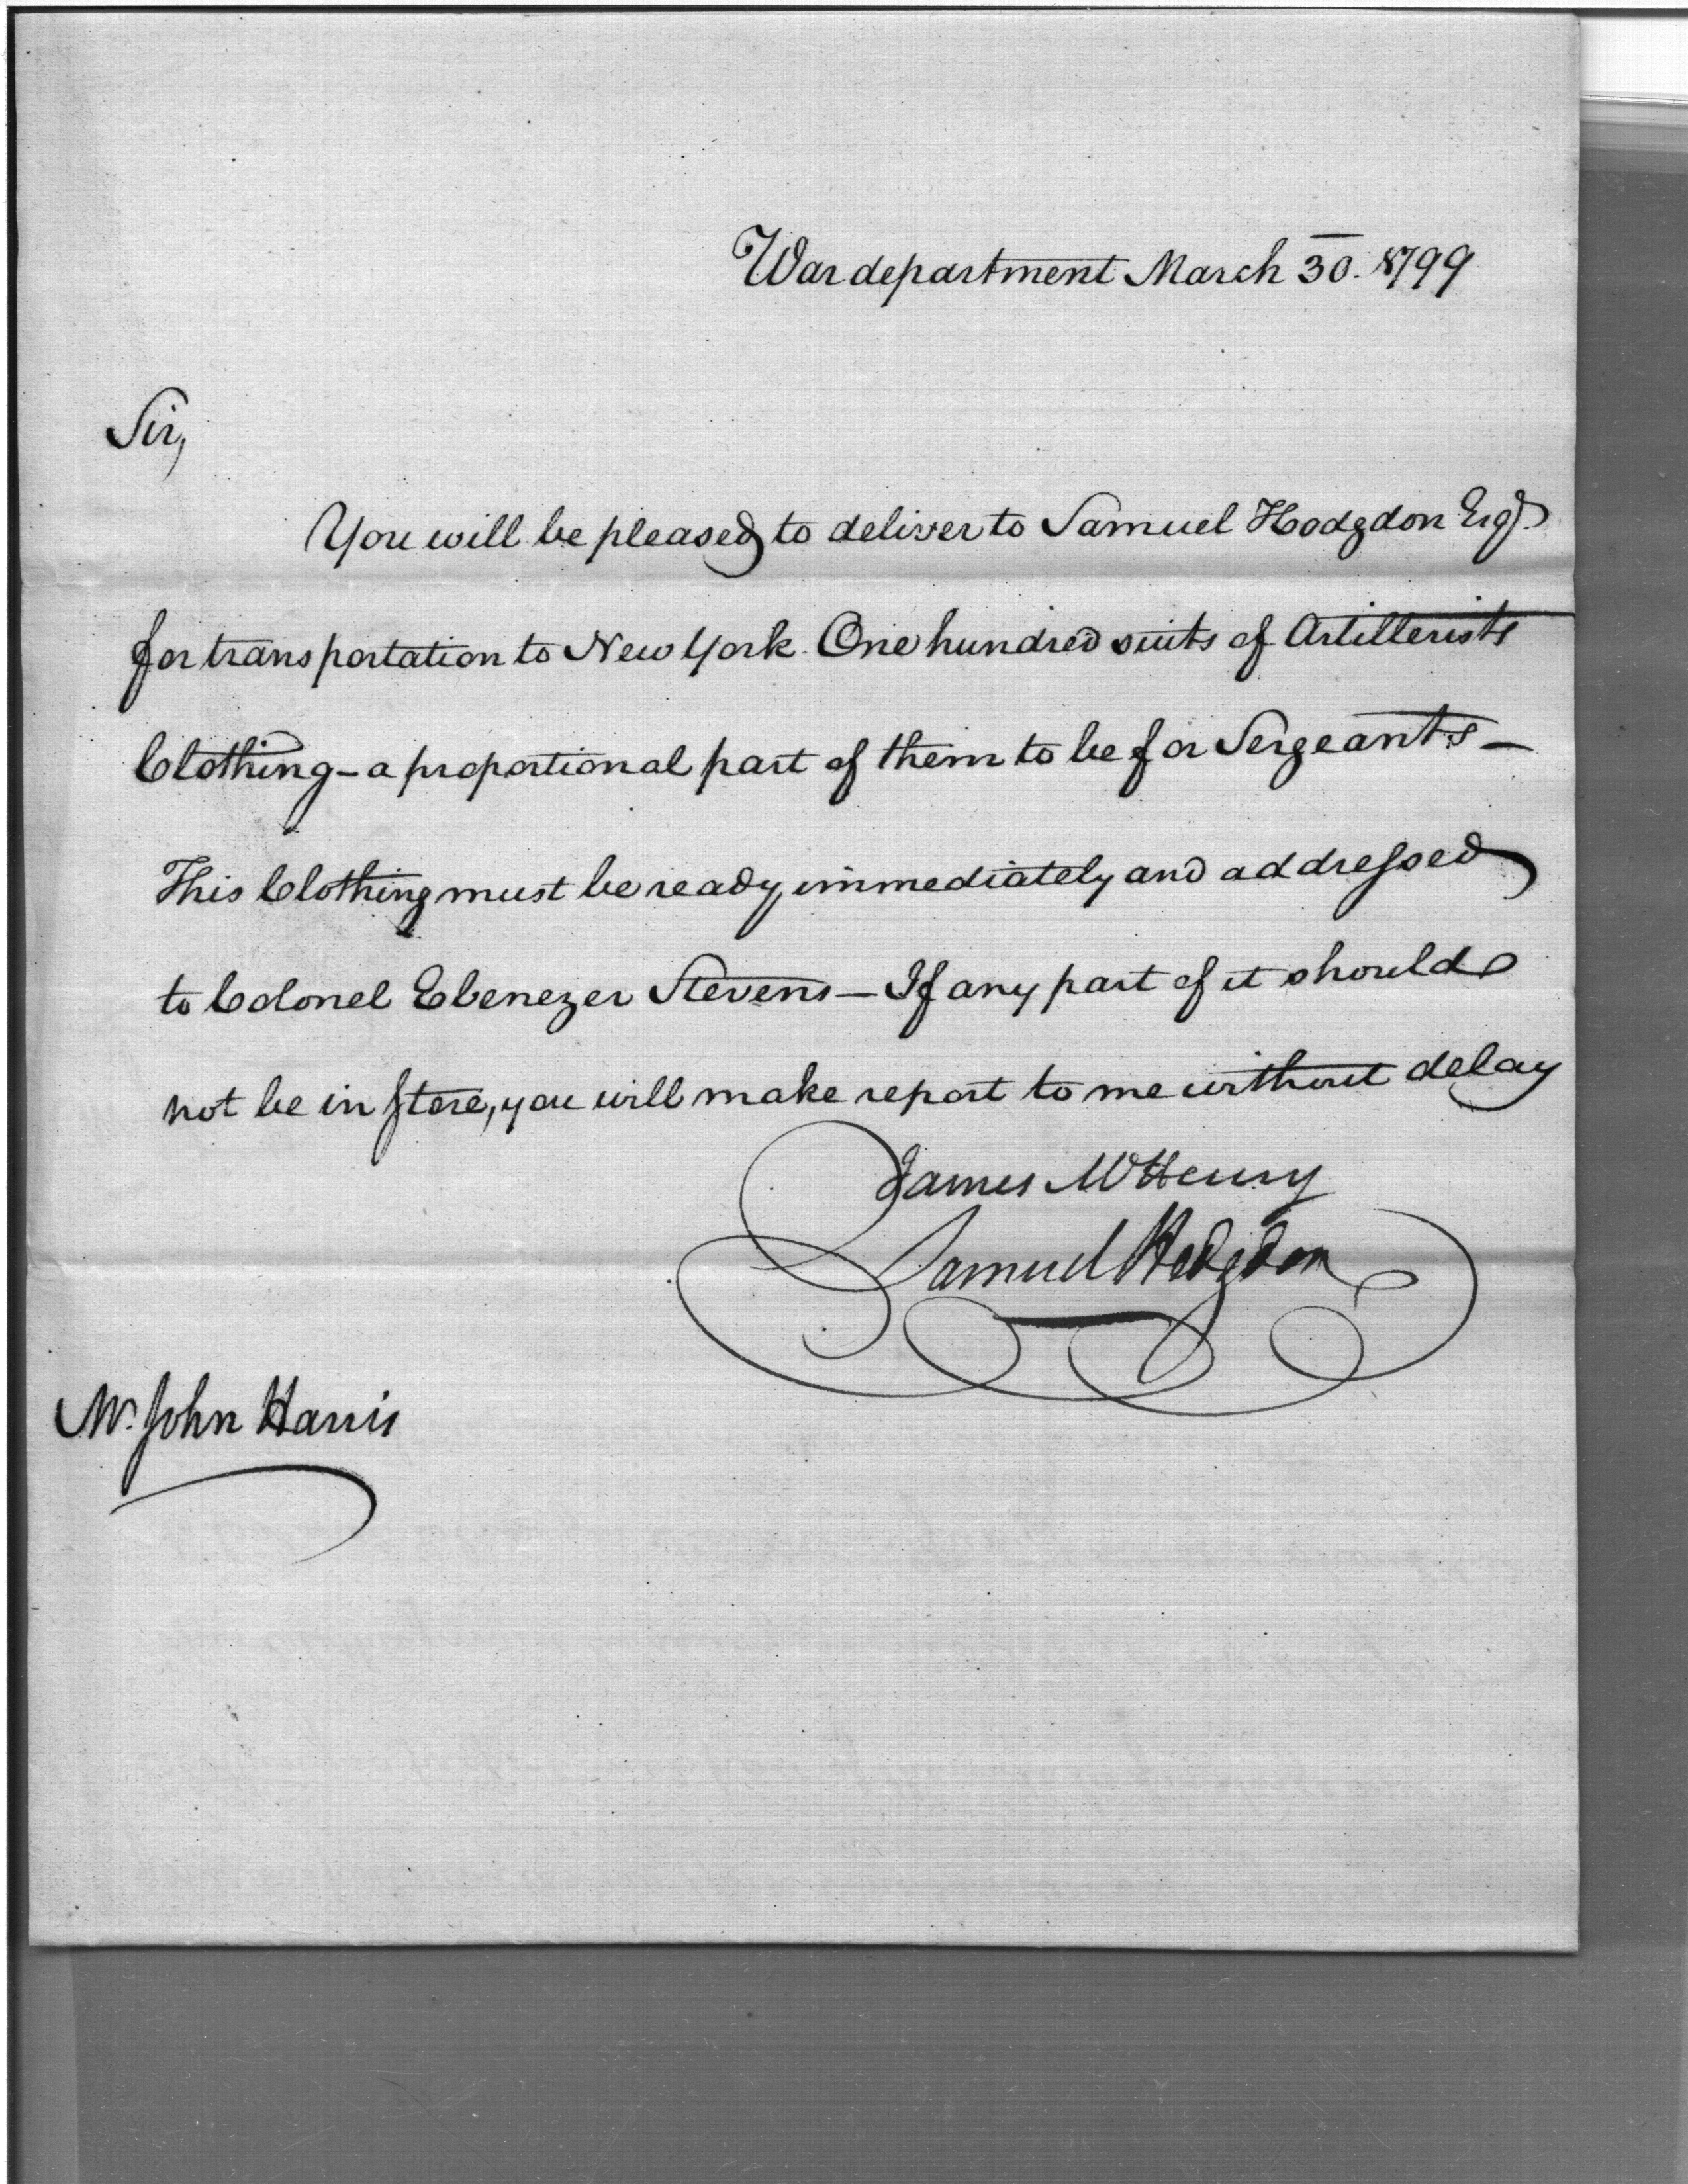 War department March 30. 1799
Sir,
You will be pleased to deliver to Samuel Hodgdon Esqr.
for transportation to New York. One hundred suits of Artillerists
Clothing – a proportional part of them to be for Sergeants –
This Clothing must be ready immediately and addressed
to Colonel Ebenezer Stevens – If any part of it should
not be in store, you will make report to me without delay
James McHenry
Samuel Hodgdon
Mr. John Harris